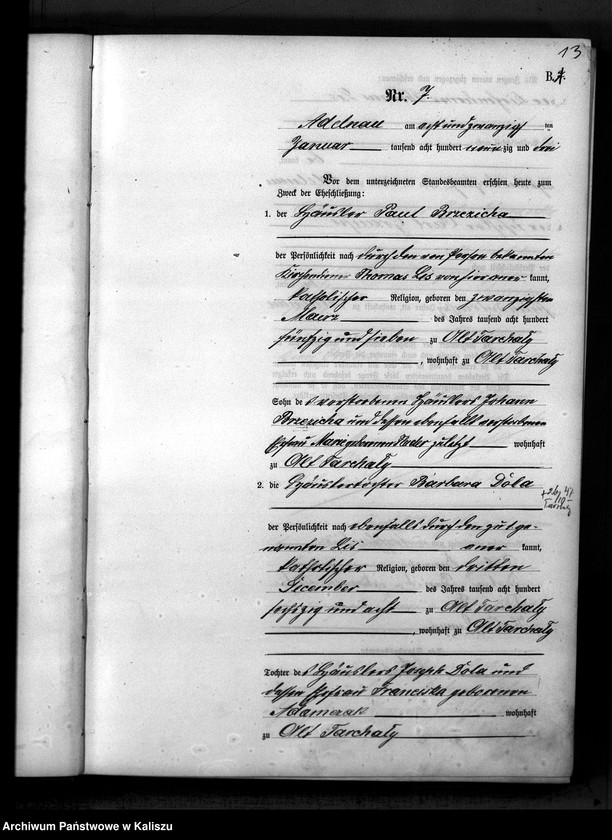 13
B.
Nr. 7.
Adelnau am acht und zwanzigsten
Januar tausend acht hundert neunzig und drei
Vor dem unterzeichneten Standesbeamten erschien heute zum
Zweck der Eheschließung:
1. der Häusler Paul Brzezicha
der Persönlichkeit nach durch den von Person bekannten
Kirchendiener Thomas Lis von hier aner kannt,
katholischer Religion, geboren den zwanzigsten
Maerz des Jahres tausend acht hundert
fünfzig und sieben zu Alt Tarchaly
, wohnhaft zu Alt Tarchaly
Sohn des verstorbenen Häuslers Johann
Brzezicha und dessen ebenfalls verstorbenen
Ehefrau Marie geborenen zuletzt wohnhaft
zu Alt Tarchaly
2. die Häuslertochter Barbara Dola
Tarchaly
der Persönlichkeit nach ebenfalls durch den ge-
nannten Lis aner kannt,
katholischer Religion, geboren den dritten
Dicember des Jahres tausend acht hundert
sechszig und acht zu Alt Tarchaly
, wohnhaft zu Alt Tarchaly
Tochter des Häuslers Joseph Dola und
dessen Ehefrau Franciska geborenen
Adamczak wohnhaft
zu Alt Tarchaly
Archiwum Państwowe w Kaliszu